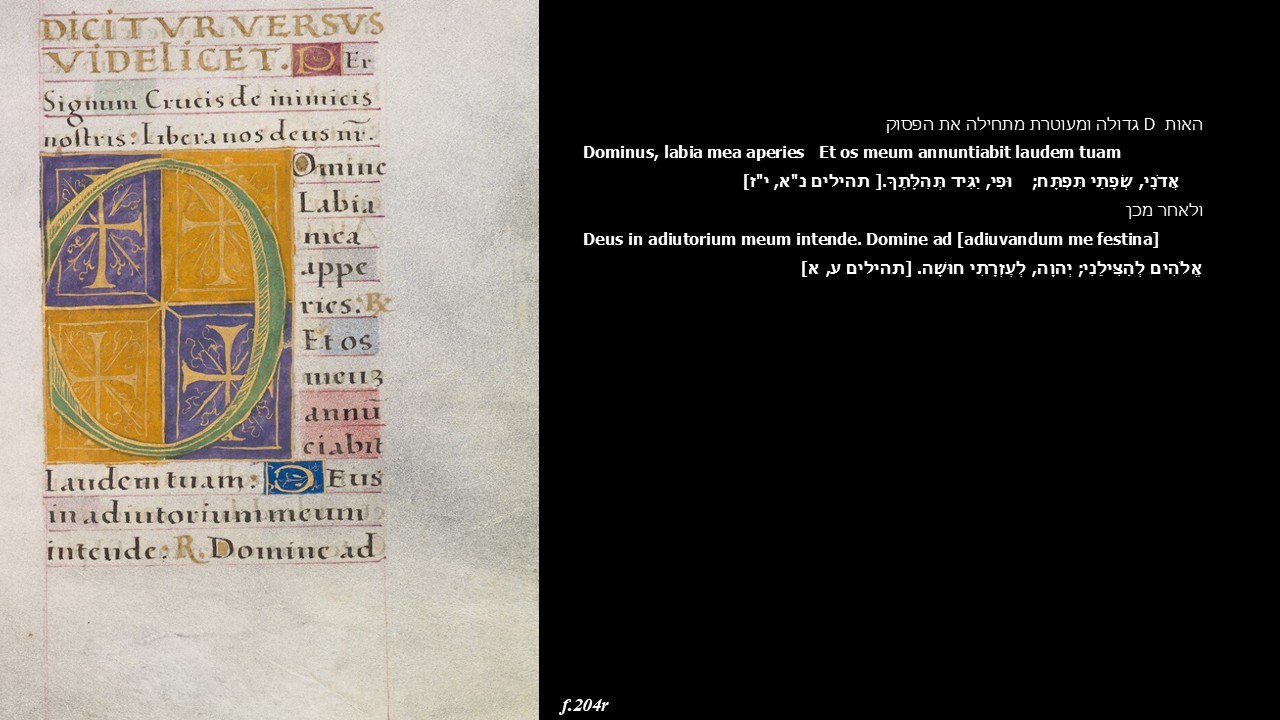 DICITVR VERSVS
VIDELICET. PEr
Signum Crucis de inimicis
nostris: Libera nos deus nr̄.
Domine
Labia
mea
appe
ries: R
Et os
meuʒ
annū
ciabit
Laudem tuam: DEus
in adiutorium meum
intende: R. Domine ad
האות D גדולה ומעוטרת מתחילה את הפסוק
Dominus, labia mea aperies Et os meum annuntiabit laudem tuam
אֲדֹנָי, שְׂפָתַי תִּפְתָּח; וּפִי, יַגִּיד תְּהִלָּתֶךָ.[ תהילים נ"א, י"ז]
ולאחר מכן
Deus in adiutorium meum intende. Domine ad [adiuvandum me festina]
אֱלֹהִים לְהַצִּילֵנִי; יְהוָה, לְעֶזְרָתִי חוּשָׁה. [תהילים ע, א]
f.204r